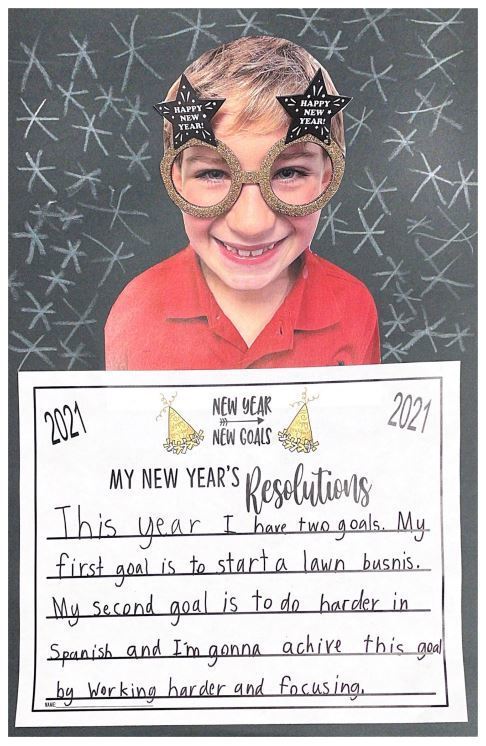 HAPPY
NEW
YEAR!
HAPPY
NEW
YEAR!
2021
NEW YEAR
NEW GOALS
2021
MY NEW YEAR'S Resolutions
This year I have two goals. My
first goal is to start a lawn busnis.
My second goal is to do harder in
Spanish and I'm gonna achive this goal
by working harder and focusing.
NAME: